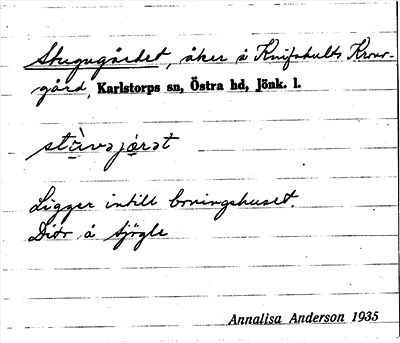 Stugugärdet, åker å Knifshults Krono-
gård, Karlstorps sn, Östra hd, Jönk. l.
stùvəjæ̀rət
Ligger intill boningshuset.
Distr å Sjögle
Annalisa Anderson 1935